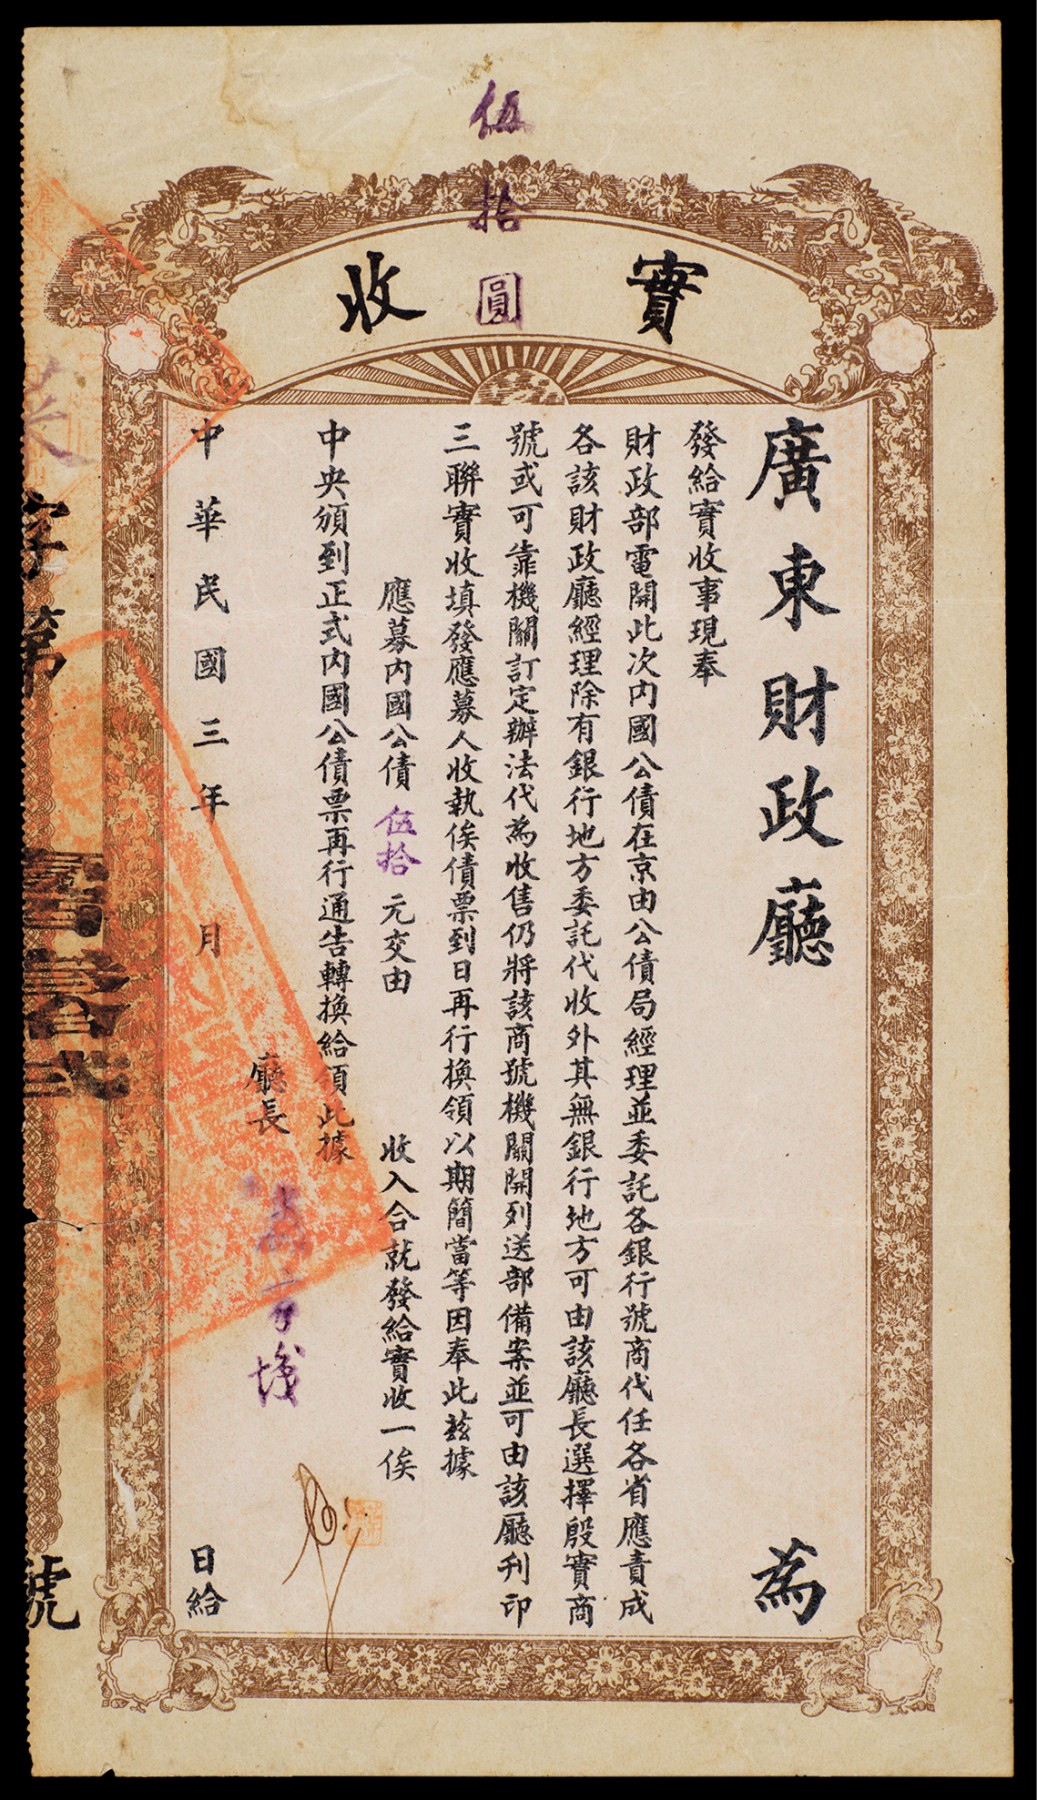 伍拾圓
實收
廣東財政廳 為
發給實收事現奉
財政部電開此次內國公債在京由公債局經理並委託各銀行號商代任各省應責成
各該財政廳經理除有銀行地方委託代收外其無銀行地方可由該廳長選擇殷實商
號或可靠機關訂定辦法代為收售仍將該商號機關開列送部備案並可由該廳刊印
三聯實收填發應募人收執俟債票到日再行換領以期簡當等因奉此茲據
應募內國公債伍拾元交由 收入合就發給實收一俟
中央頒到正式內國公債票再行通告轉換給領此據
廳長
中華民國三年 月 日給
字第 號